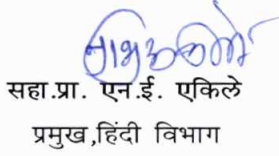 सहा.प्रा. एन.ई. एकिले
प्रमुख,हिंदी विभाग